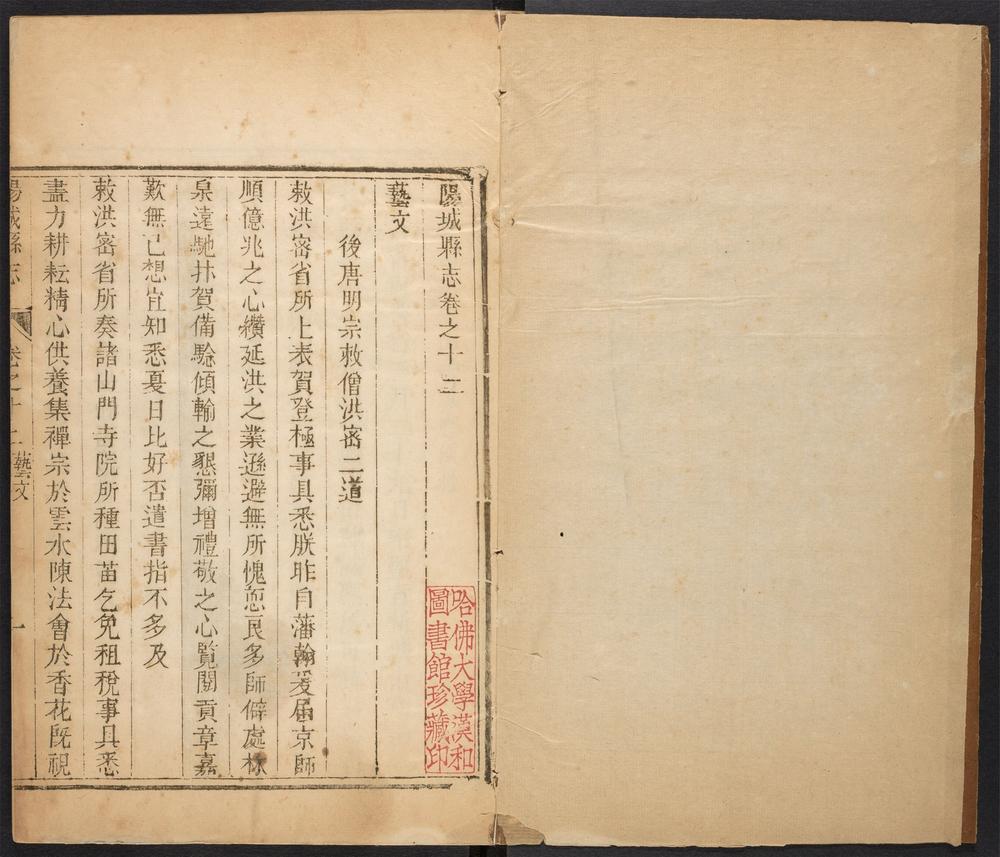 陽城縣志卷之十二
哈佛大學漢和
圖書館珍藏印
藝文
後唐明宗敕僧洪密二道
敕洪密省所上表賀登極事具悉朕昨自藩翰爰屆京師
順億兆之心纘延洪之業遜避無所愧恧良多師僻處林
泉遠馳抃賀備驗傾輸之懇彌增禮敬之心覽閱貢章嘉
歎無已想宜知悉夏日比好否遣書指不多及
敕洪密省所奏諸山門寺院所種田苗乞免租稅事具悉
盡力耕耘精心供養集禪宗於雲水陳法會於香花旣視
陽城縣志
卷之十二
藝文
一